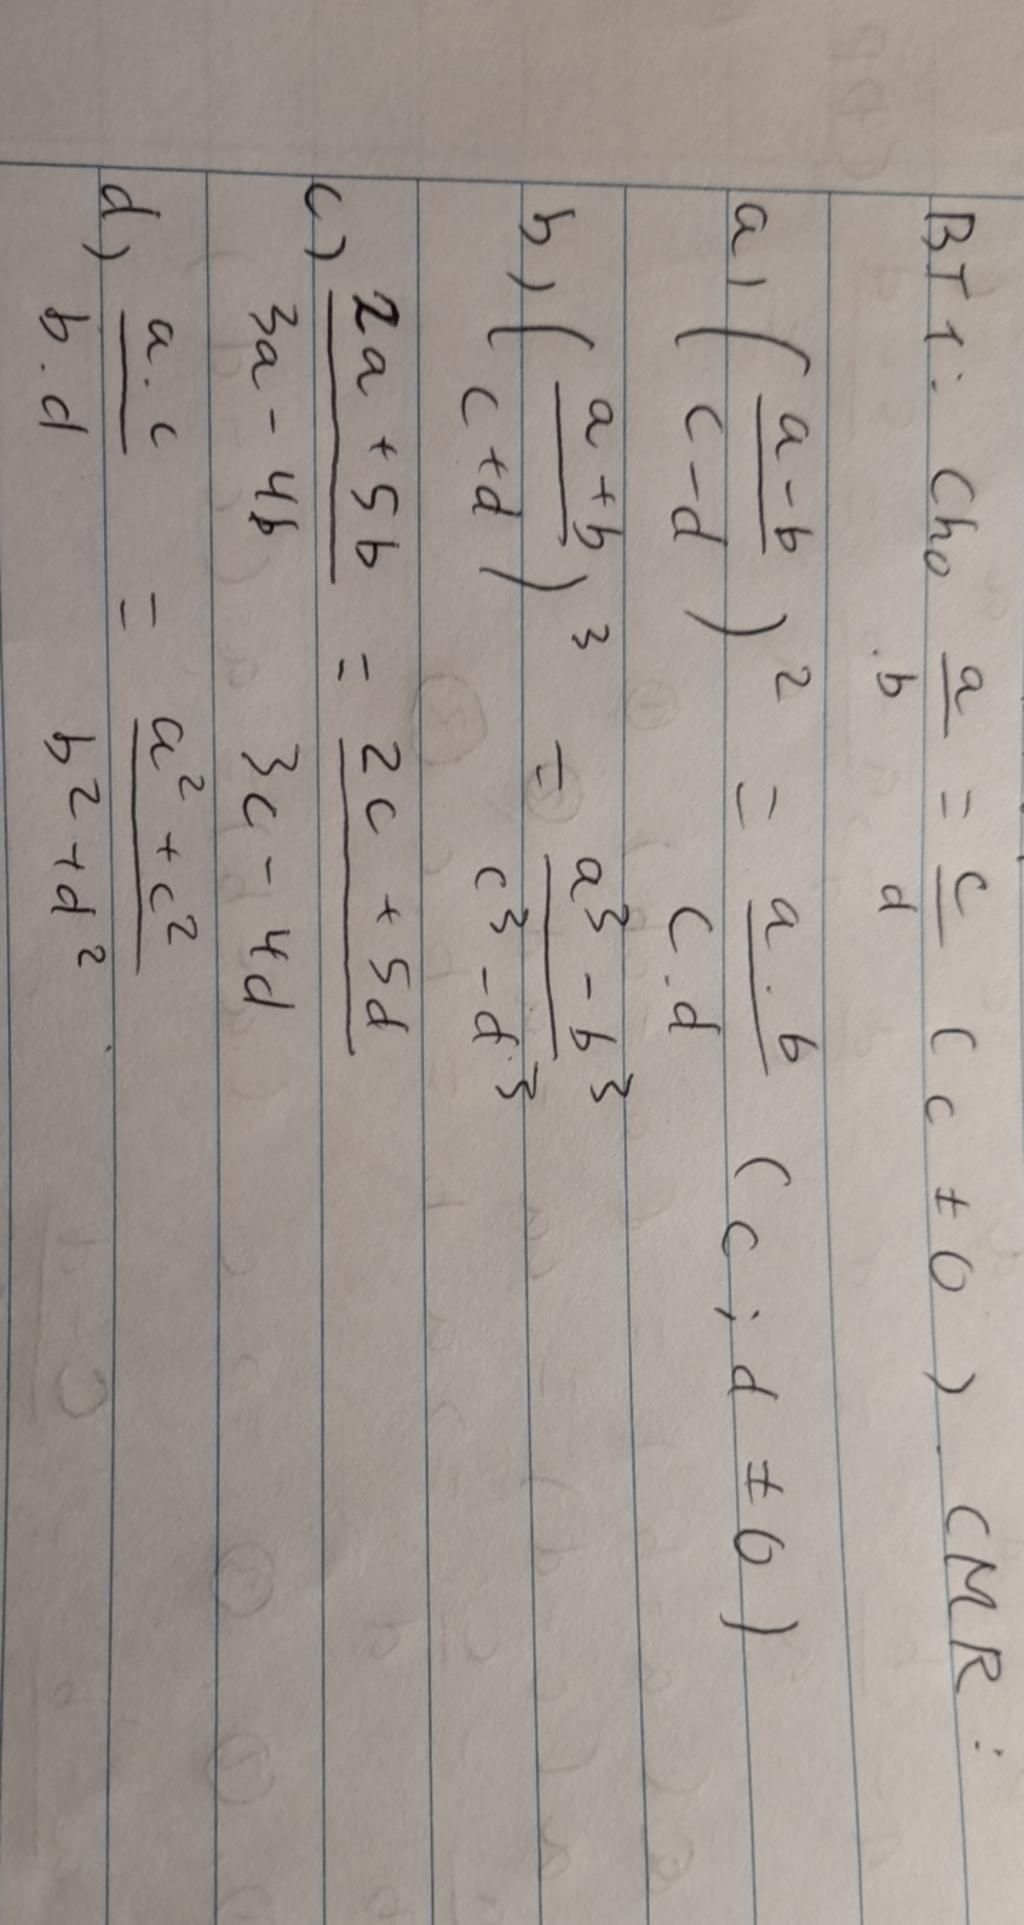 BT1: Cho a/b = c/d (c ≠ 0). CMR:
a, ((a-b)/(c-d))² = (a.b)/(c.d) (c; d ≠ 0)
b, ((a+b)/(c+d))³ = (a³-b³)/(c³-d³)
c, (2a+5b)/(3a-4b) = (2c+5d)/(3c-4d)
d, (a.c)/(b.d) = (a²+c²)/(b²+d²)